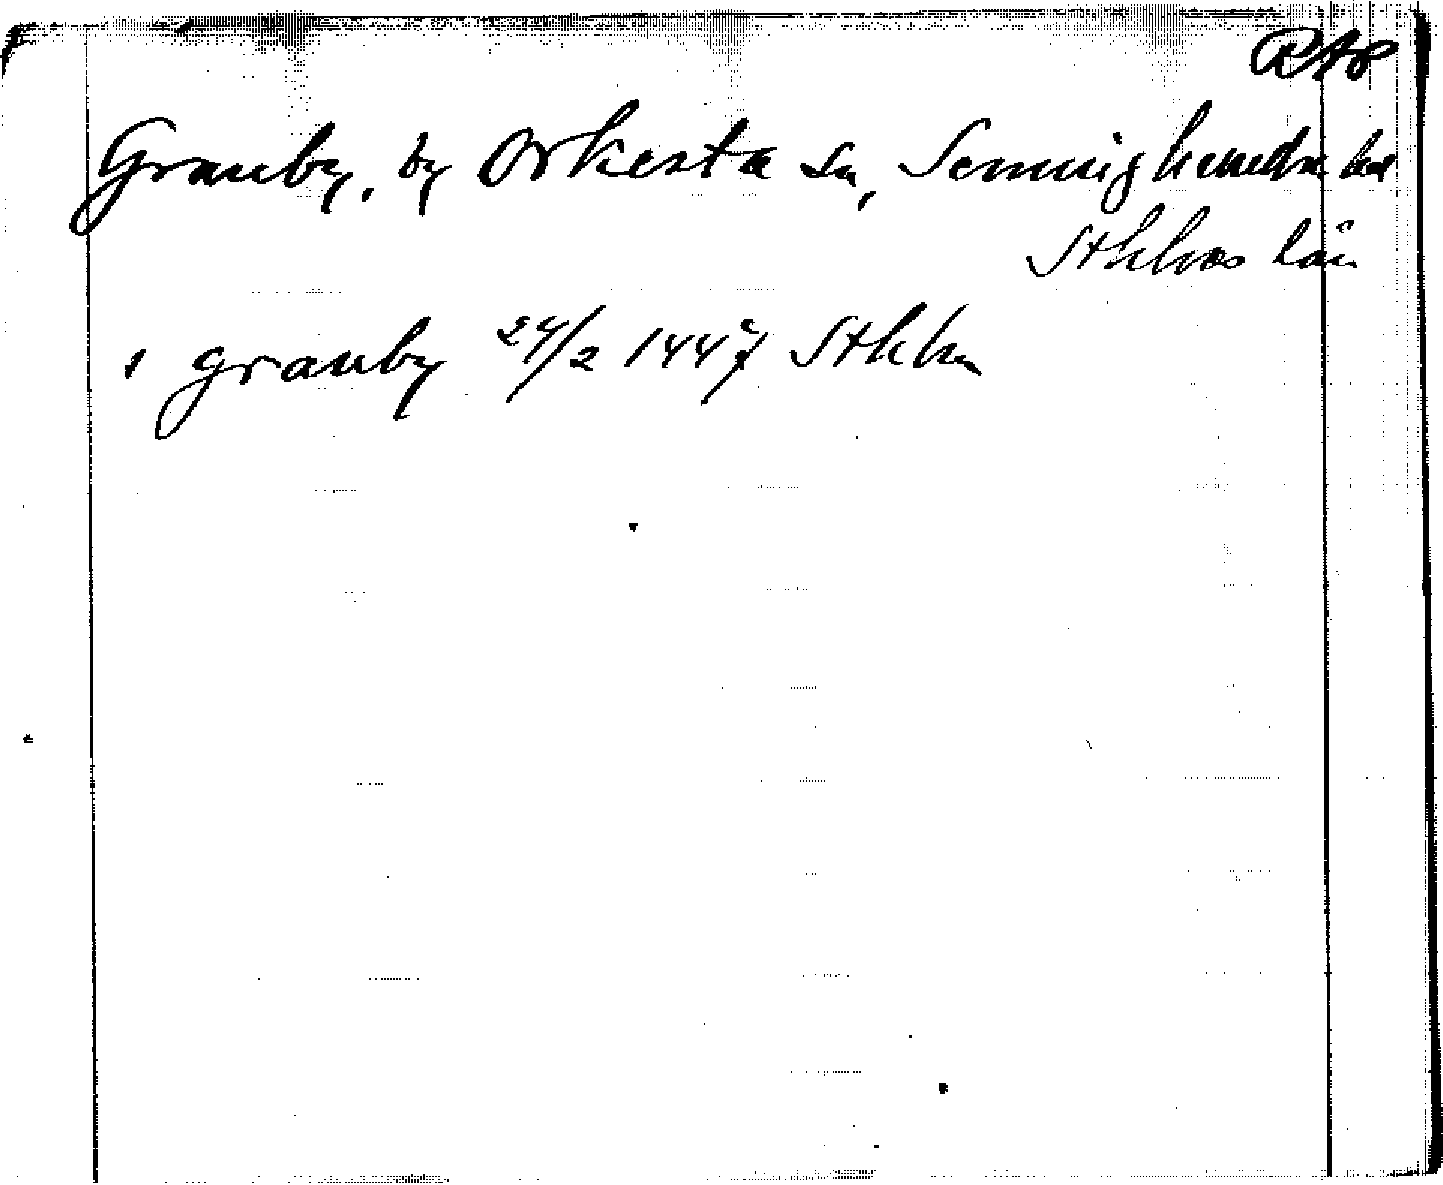 RAp
Granby, by Orkesta sn, Seminghundra hd
Sthlms län
i granby 24/2 1447 Sthlm